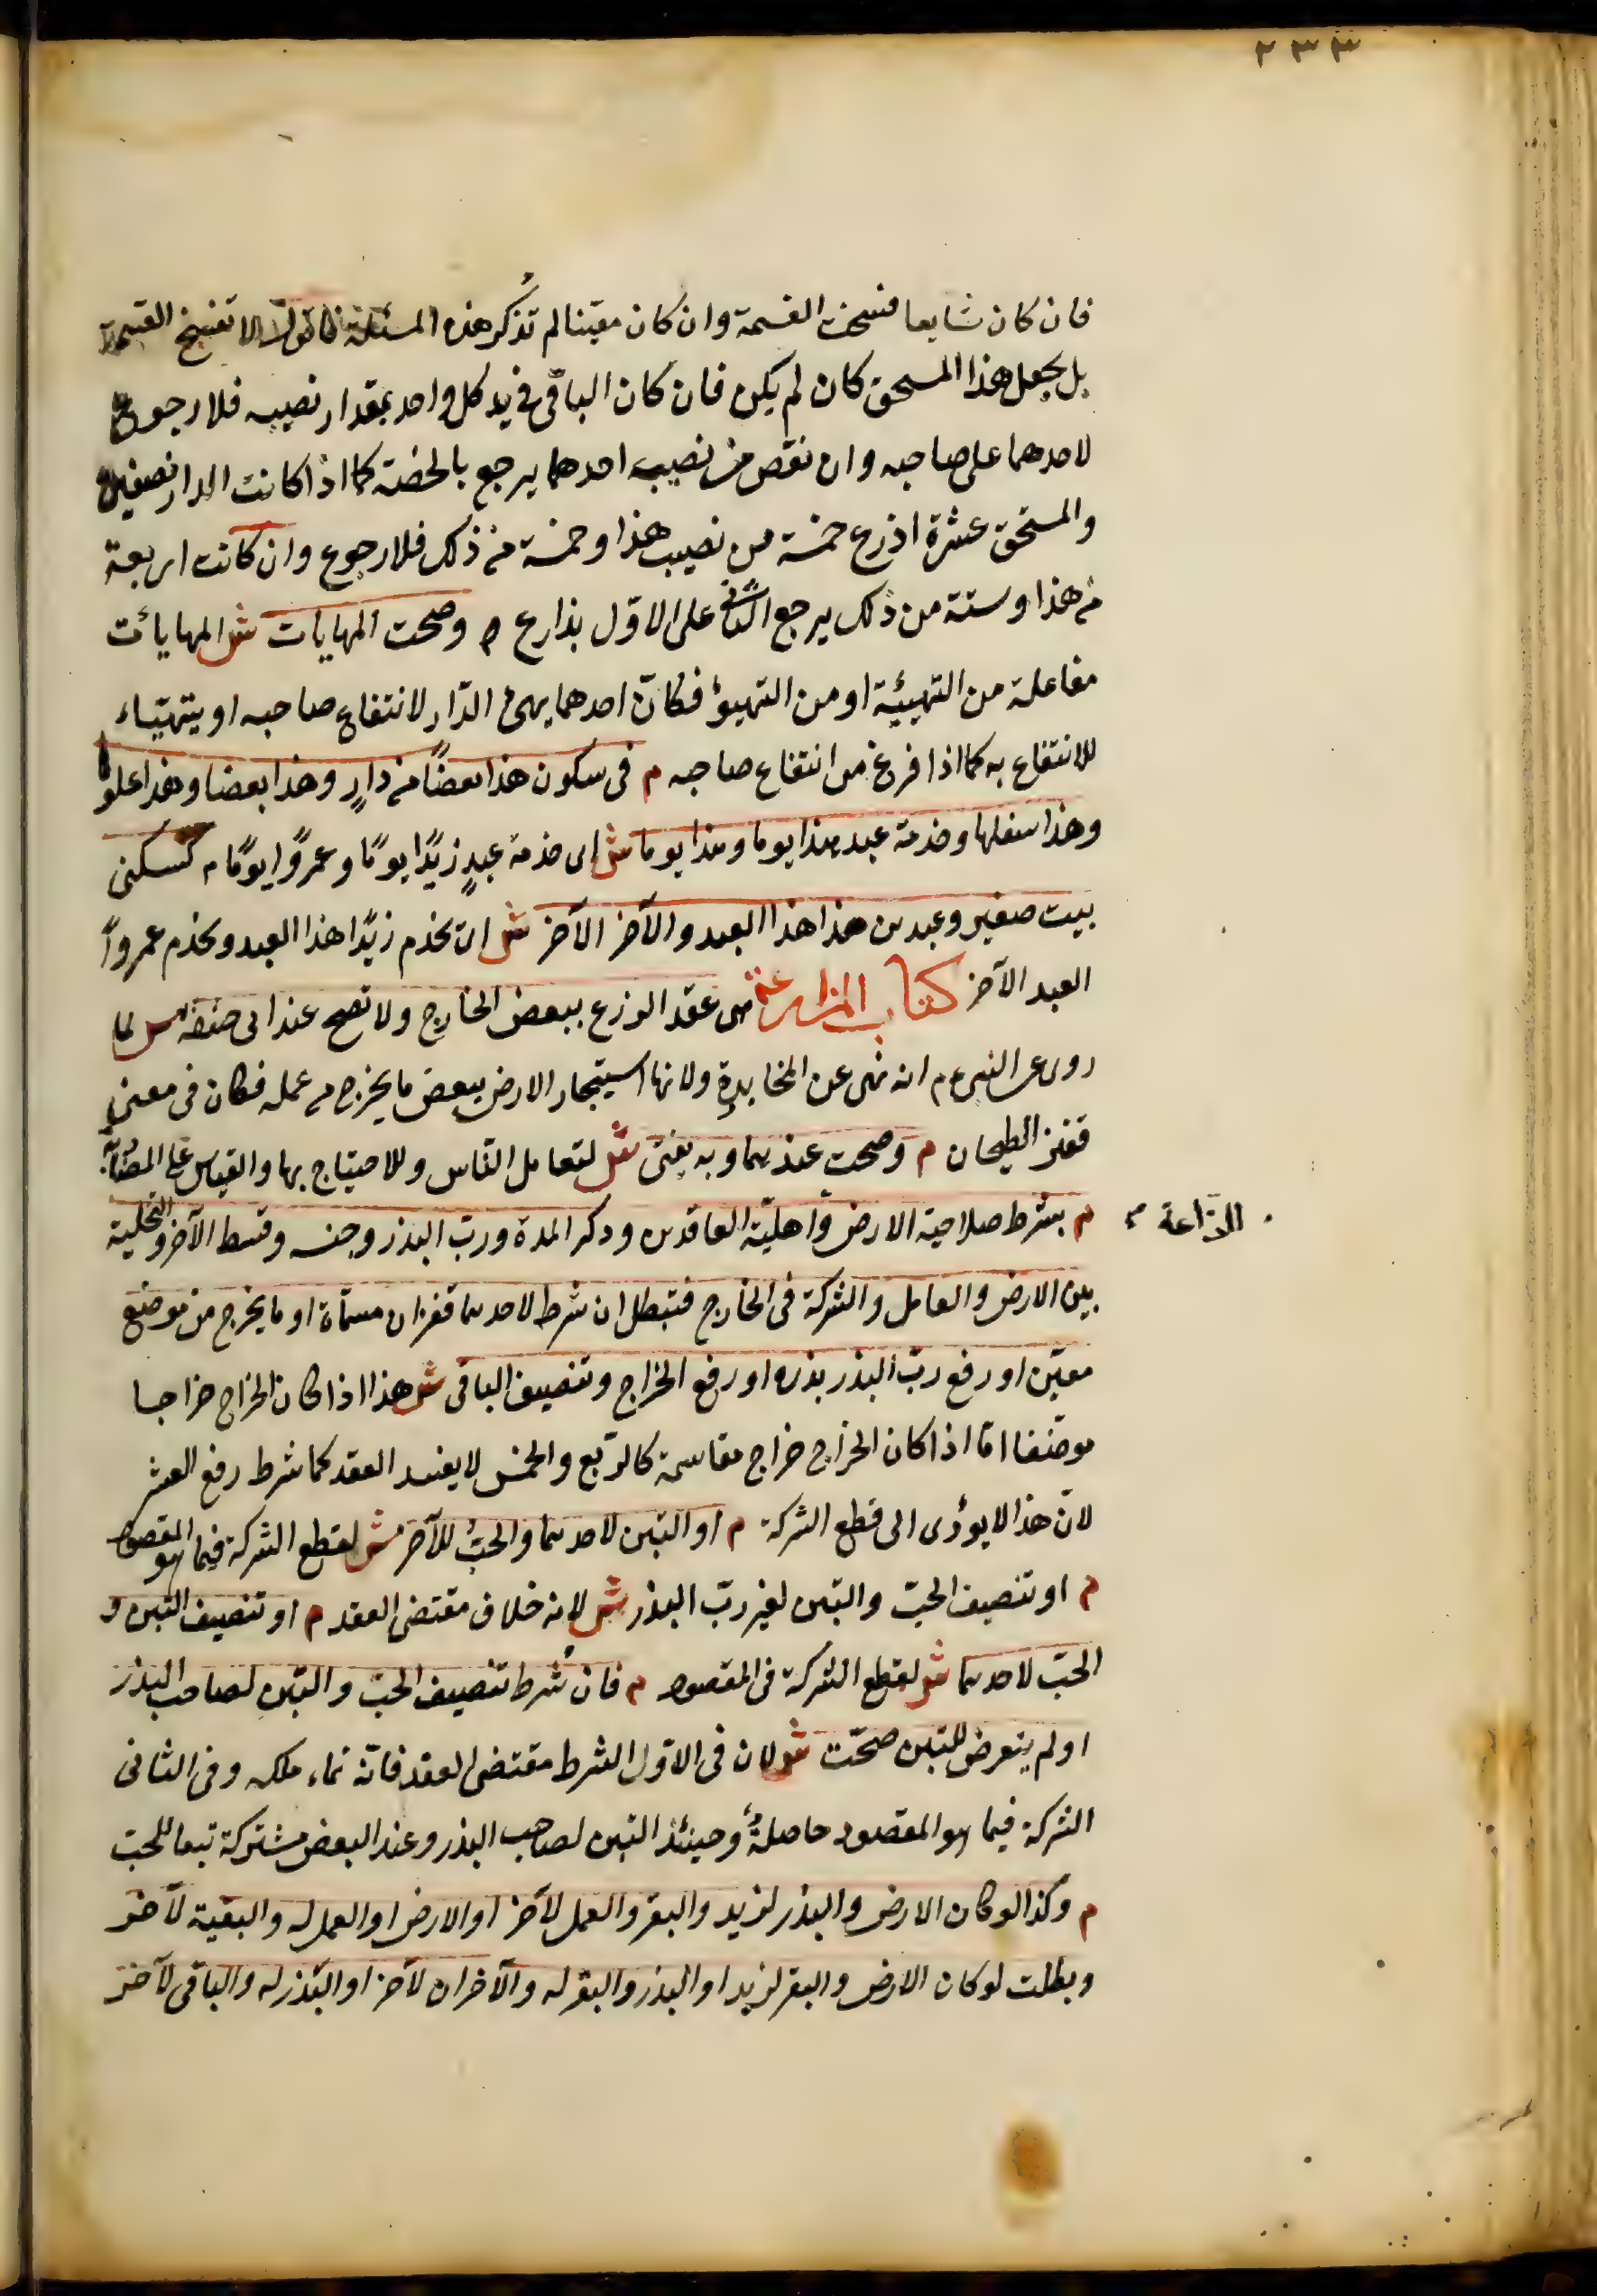 ٢٣٣
فان كان شايعا فسخت القسمة وان كان معيّنا لم تُذكر هذه المسئلة فاقول لا تفسخ القسمة
بل يجعل هذا المستحق كان لم يكن فان كان الباقى فى يد كل واحد بمقدار نصيبه فلا رجوع
لاحدهما على صاحبه وان نقص من نصيب احدهما يرجع بالحصّة كما اذا كانت الدار نصفين
والمستحق عشرة اذرع خمسة من نصيب هذا وخمسة من ذلك فلا رجوع وان كانت اربعة
من هذا وستة من ذلك يرجع الثانى على الاوّل بذراع م وصحت المهايات ش المهايات
مفاعلة من التهيئة او من التهيؤ فكانّ احدهما يهئ الدّار لانتفاع صاحبه او يتهيّاء
للانتفاع به كما اذا فرغ من انتفاع صاحبه م فى سكون هذا بعضًا من دارٍ وهذا بعضا وهذا علوها
وهذا سفلها وخدمة عبد هذا يوما وهذا يوما ش اى خدمة عبدٍ زيدًا يومًا وعمروًا يومًا م كسكنى
بيت صغير وعبدين هذا هذا العبد والآخر الآخر ش ان يخدم زيدًا هذا العبد ويخدم عمروًا
العبد الآخر كتاب المزارعة هى عقد الزرع ببعض الخارج ولا تصح عند ابى حنيفة ش لما
روى عن النبى ءم انه نهى عن المخابرة ولانها استيجار الارض ببعض ما يخرج من عمله فكان فى معنى
قفيز الطحان م وصحت عندهما وبه يفتى ش لتعامل النّاس وللاحتياج بها والقياس على المضاربة
م بشرط صلاحية الارض وأهليّة العاقدين وذكر المدة وربّ البذر وجنسه وقسط الآخر والتخلية
للزراعة
بين الارض والعامل والشركة فى الخارج فتبطل ان شرط لاحدهما قفزان مسمّاة او ما يخرج من موضع
معيّن او رفع ربّ البذر بذره او رفع الخراج وتنصيف الباقى ش هذا اذا كان الخراج خراجا
موظّفا امّا اذا كان الخراج خراج مقاسمة كالربع والخمس لا يفسد العقد كما شرط رفع العشر
لانّ هذا لا يؤدى الى قطع الشركة م او التبن لاحدهما والحبّ للآخر ش لقطع الشركة فيما هو المقصود
م او تنصيف الحبّ والتبن لغير ربّ البذر ش لانه خلاف مقتضى العقد م او تنصيف التبن و
الحبّ لاحدهما ش لقطع الشركة فى المقصود م فان شُرط تنصيف الحبّ والتبن لصاحب البذر
او لم يتعرض للتبن صحّت ش لان فى الاوّل الشرط مقتضى العقد فانّه نماء ملكه وفى الثانى
الشركة فيما هو المقصود حاصلةٌ وحينئذ التبن لصاحب البذر وعند البعض مشتركة تبعا للحبّ
م وكذا لو كان الارض والبذر لزيد والبقر والعمل لآخر او الارض او العمل له والبقية لآخر
وبطلت لو كان الارض والبقر لزيد او البذر والبقر له والآخران لآخر او البذر له والباقى لآخر